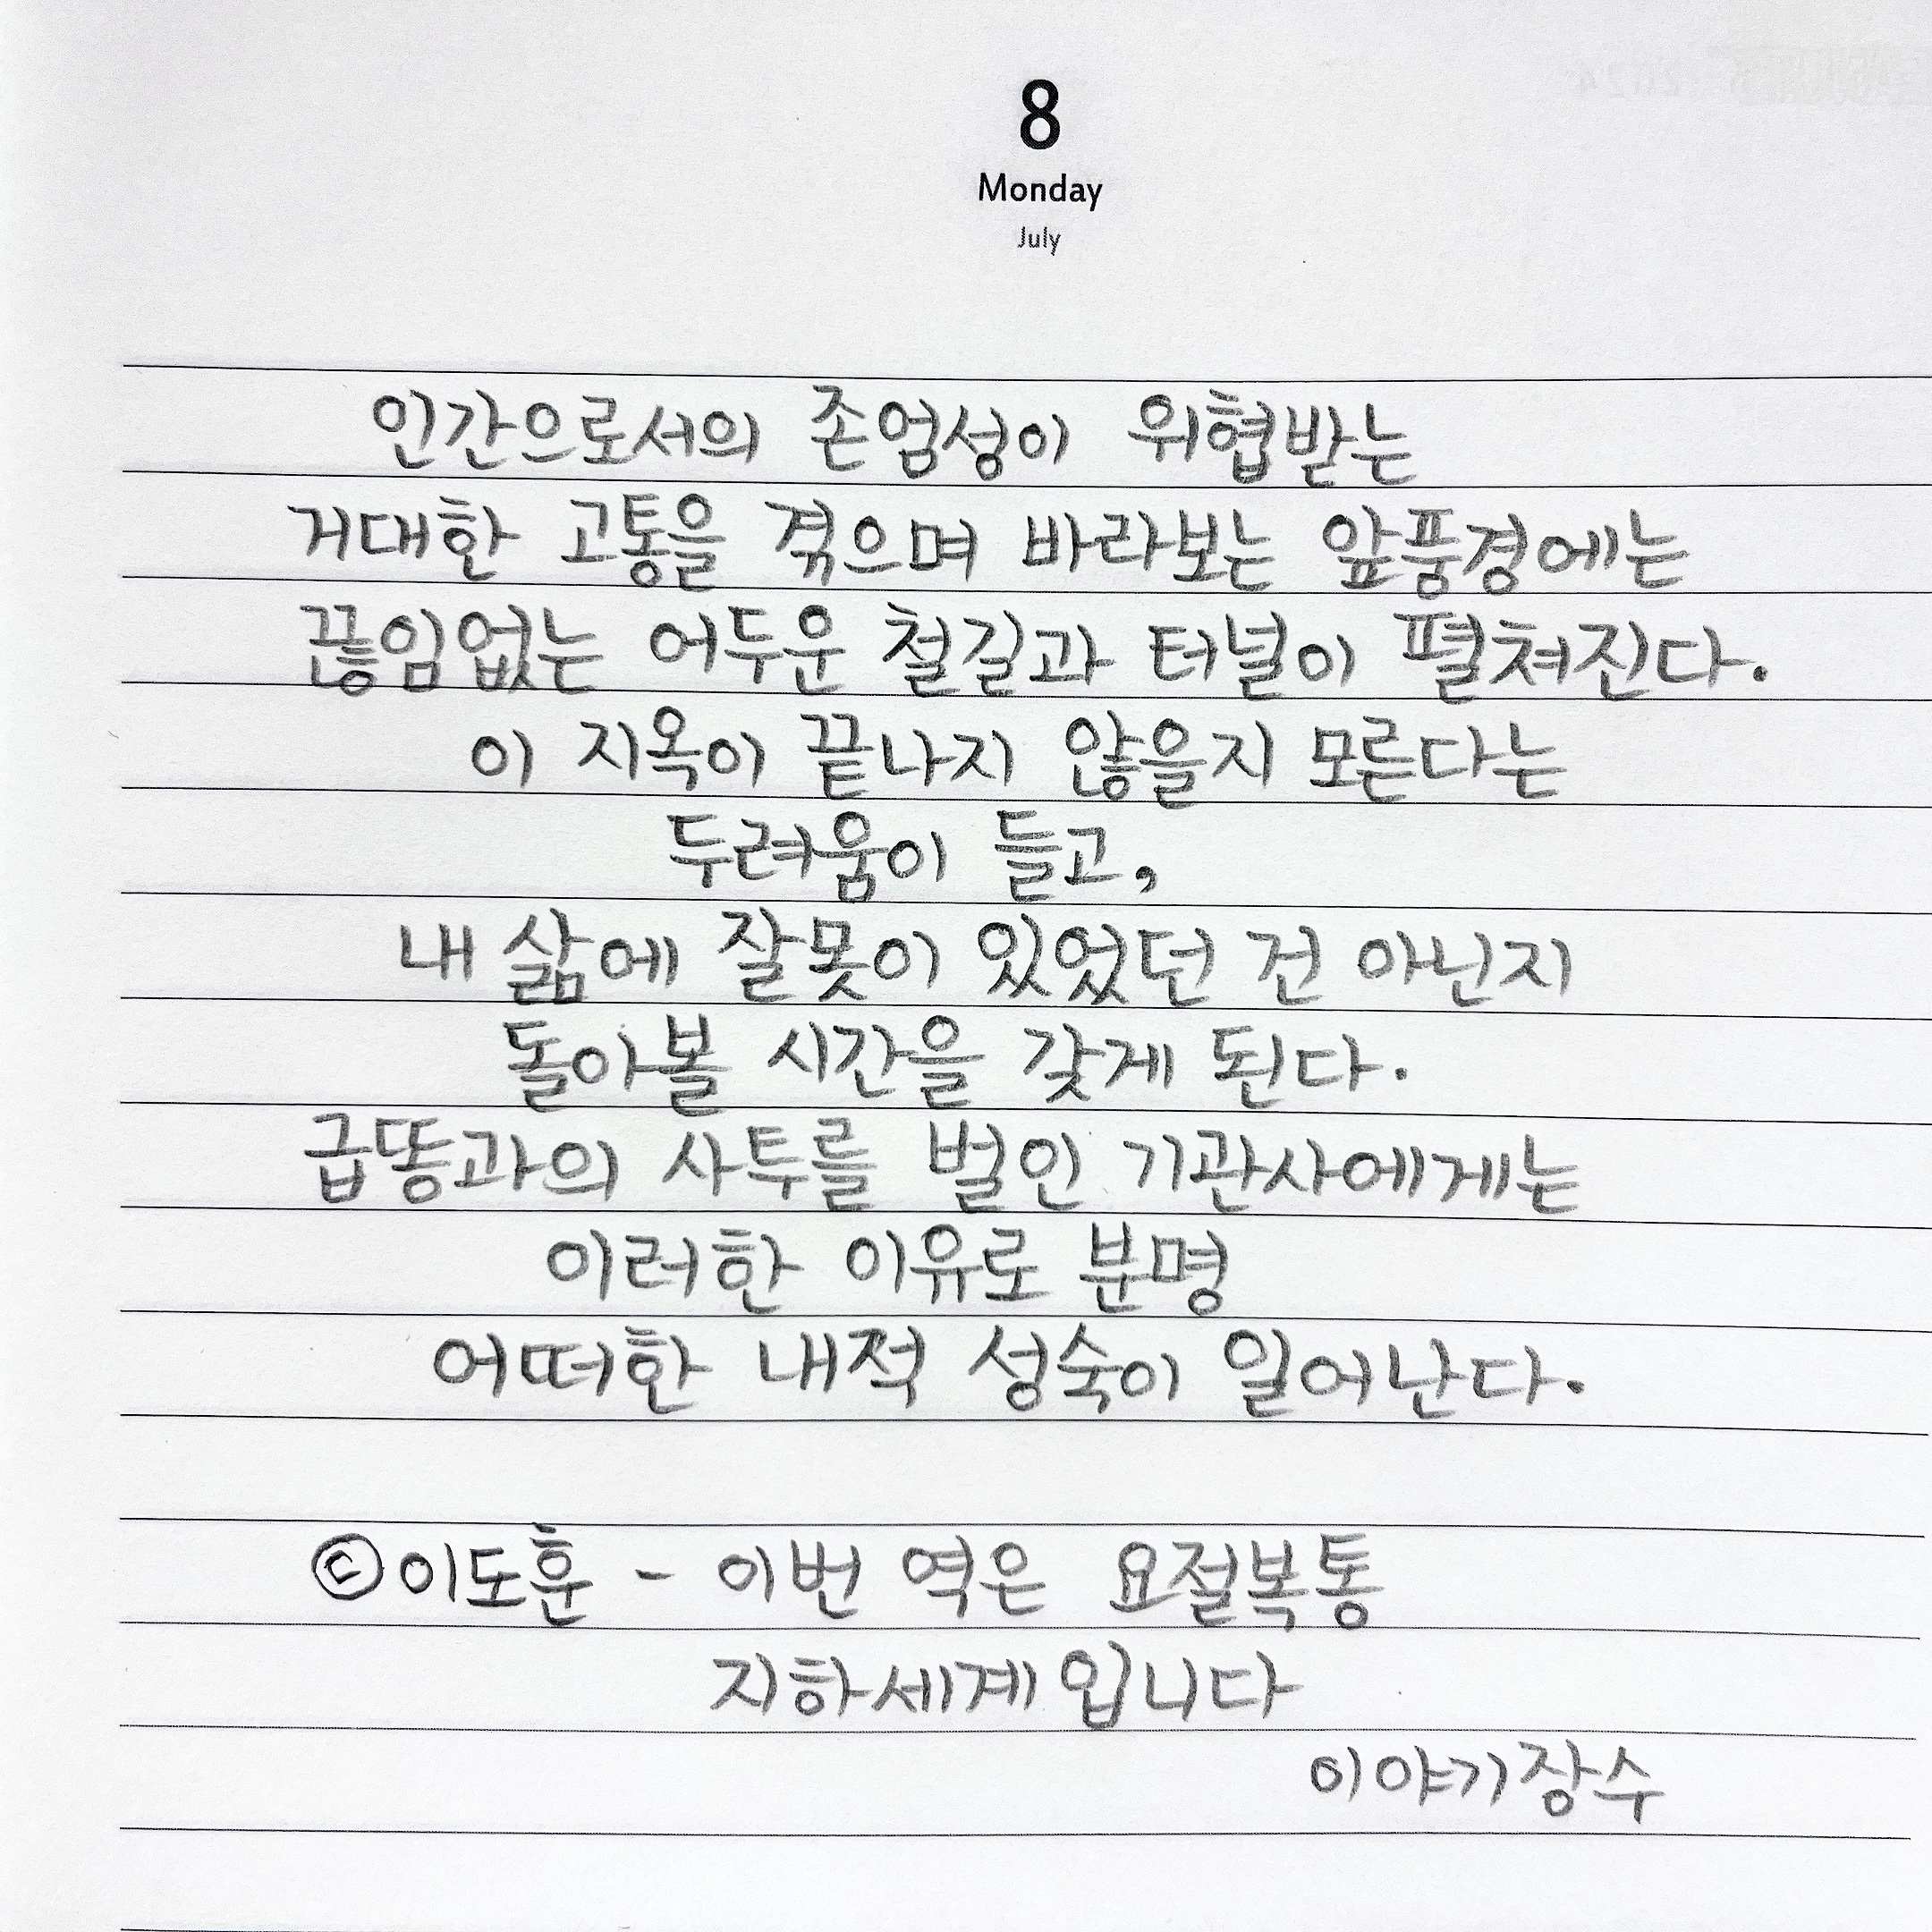 8
Monday
July
인간으로서의 존엄성이 위협받는
거대한 고통을 겪으며 바라보는 앞풍경에는
끊임없는 어두운 철길과 터널이 펼쳐진다.
이 지옥이 끝나지 않을지 모른다는
두려움이 들고,
내 삶에 잘못이 있었던 건 아닌지
돌아볼 시간을 갖게 된다.
급똥과의 사투를 벌인 기관사에게는
이러한 이유로 분명
어떠한 내적 성숙이 일어난다.
©이도훈 - 이번 역은 요절복통
지하세계입니다
이야기장수